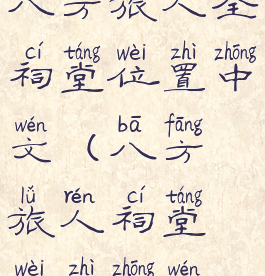 八方旅人全
cí táng wèi zhì zhōng
祠堂位置中
wén bā fāng
文（八方
lǚ rén cí táng
旅人祠堂
wèi zhì zhōng wén